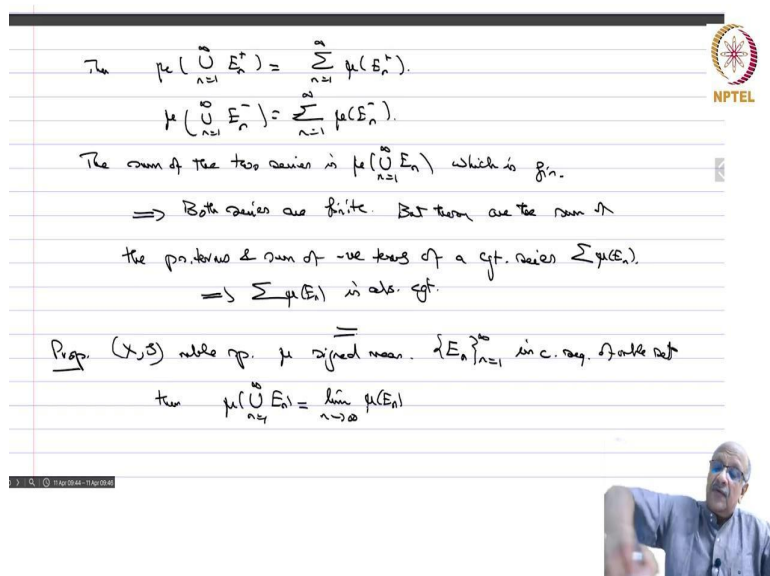 Then μ(⋃_{n=1}^∞ E_n^+) = ∑_{n=1}^∞ μ(E_n^+).
NPTEL
μ(⋃_{n=1}^∞ E_n^-) = ∑_{n=1}^∞ μ(E_n^-).
The sum of the two series is μ(⋃_{n=1}^∞ E_n) which is fin.
⇒ Both series are finite. But these are the sum of
the pos. terms & sum of -ve terms of a cgt. series ∑μ(E_n).
⇒ ∑μ(E_n) is abs. cgt.
Prop. (X,S) mble sp. μ signed meas. {E_n}_{n=1}^∞ inc. seq. of mble set
then μ(⋃_{n=1}^∞ E_n) = lim_{n→∞} μ(E_n)
11 Apr 09:44 - 11 Apr 09:46